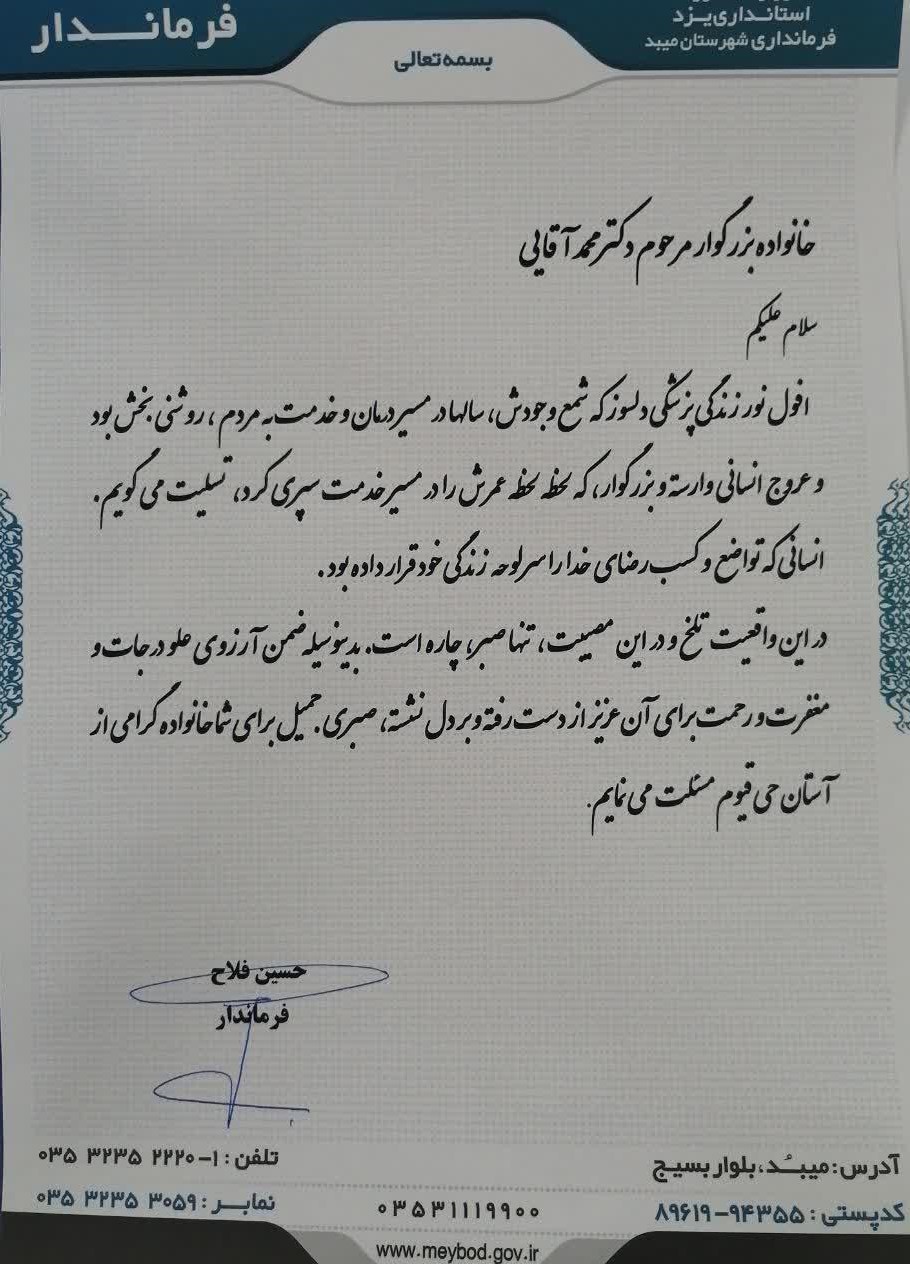 استانداری یزد
فرمانداری شهرستان میبد
فرمانــدار
بسمه‌تعالی
خانواده بزرگوار مرحوم دکتر محمد آقایی
سلام علیکم
افول نور زندگی پزشکی دلسوز که شمع وجودش، سالها در مسیر درمان و خدمت به مردم، روشنی بخش بود
و عروج انسانی وارسته و بزرگوار، که لحظه لحظه عمرش را در مسیر خدمت سپری کرد، تسلیت می گویم.
انسانی که تواضع و کسب رضای خدا را سرلوحه زندگی خود قرار داده بود.
در این واقعیت تلخ و در این مصیبت، تنها صبر، چاره است. بدینوسیله ضمن آرزوی علو درجات و
مغفرت و رحمت برای آن عزیز از دست رفته و بر دل نشسته، صبری جمیل برای شما خانواده گرامی از
آستان حی قیوم مسئلت می نمایم.
حسین فلاح
فرماندار
آدرس: میبـُـد، بلوار بسیج
تلفن: ۱-۲۲۲۰ ۳۲۳۵ ۰۳۵
کدپستی: ۹۴۳۵۵-۸۹۶۱۹
۰۳۵۳۱۱۱۹۹۰۰
نمابــر: ۳۰۵۹ ۳۲۳۵ ۰۳۵
www.meybod.gov.ir